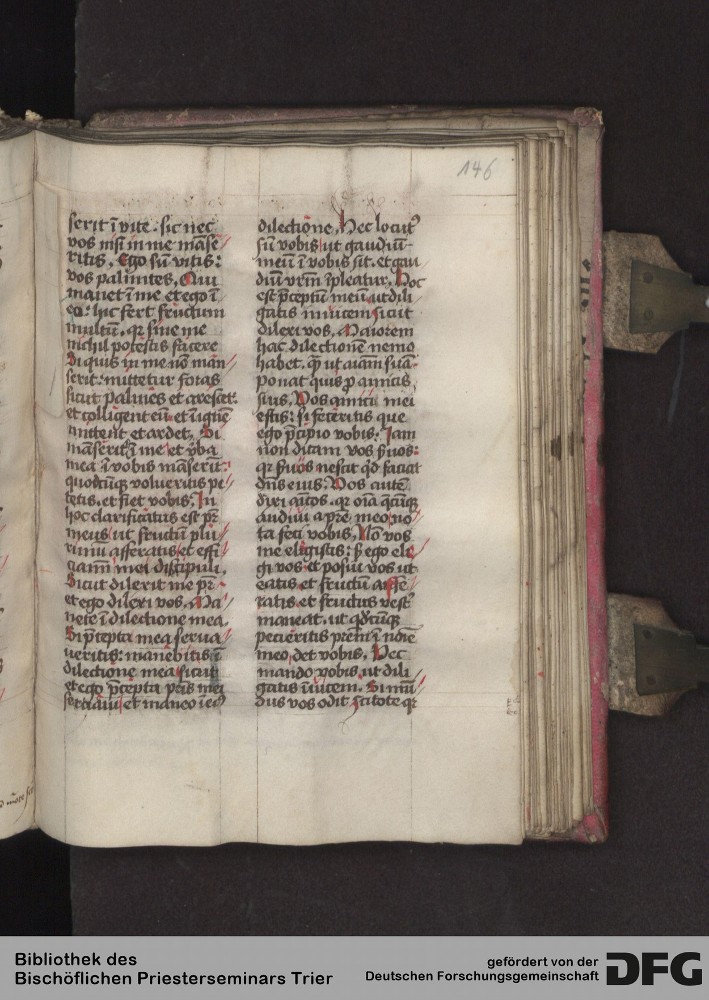 146
serit ī vite. sic nec
vos nisi in me māse
ritis. Ego sū vitis:
vos palmites. Qui
manet ī me et ego ī
eo: hic fert fructum
multū. qꝛ sine me
nichil potestis facere
Si quis in me nō man
serit: mittetur foras
sicut palmes et arescet.
et colligent eū. et ī ignē
mittent et ardet. Si
māseritis ī me et v̄ba
mea ī vobis māserit.
quodcūqꝫ volueritis pe
tetis. et fiet vobis. In
hoc clarificatus est pr̄
meus ut fructū plu
rimū afferatis et effi
ciami mei discipuli.
Sicut dilexit me pr̄
et ego dilexi vos. Ma
nete ī dilectione mea.
Si p̄cepta mea serua
ueritis: manebitis ī
dilectione mea sicut
et ego p̄cepta pr̄is mei
seruaui et maneo ī eiꝰ
dilectione. Hec locutꝰ
sū vobis ut gaudiū
meū ī vobis sit. et gau
diū vr̄m īpleatur. Hoc
est p̄ceptū meū ut dili
gatis inuicem sicut
dilexi vos. Maiorem
hac dilectionē nemo
habet. qͣ ut aīam suā
ponat quis p̱ amicis
suis. Vos amici mei
estis: si feceritis que
ego p̄cipio vobis. Iam
non dicam vos s̄uos:
qꝛ s̄uos nescit qͥd faciat
dn̄s eius. Vos autē
dixi aīcos. qꝛ oīa q̄cūqꝫ
audiui a pr̄e meo no
ta feci vobis. Nō vos
me elegistis: sꝫ ego ele
gi vos et posui vos ut
eatis et fructū affe
ratis et fructus vestꝰ
maneat. ut qͦdcūqꝫ
pecieritis prem̄ ī noīe
meo det vobis. Hec
mando vobis. ut dili
gatis īuicem. Si mū
dus vos odit scitote qꝛ
Bibliothek des
Bischöflichen Priesterseminars Trier
gefördert von der
Deutschen Forschungsgemeinschaft
DFG